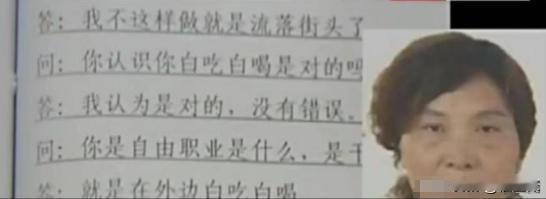 答：我不这样做就是流落街头了
问：你认识你白吃白喝是对的吗
答：我认为是对的，没有错误。
问：你是自由职业是什么，是干
答：就是在外边白吃白喝